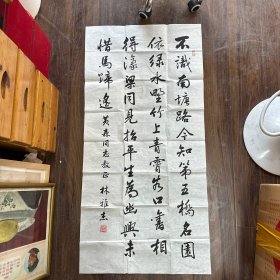 不識南塘路今知第五橋名園
依綠水野竹上青霄谷口舊相
得濠梁同見招平生為幽興未
惜馬蹄遙 英森同志教正 林雅杰